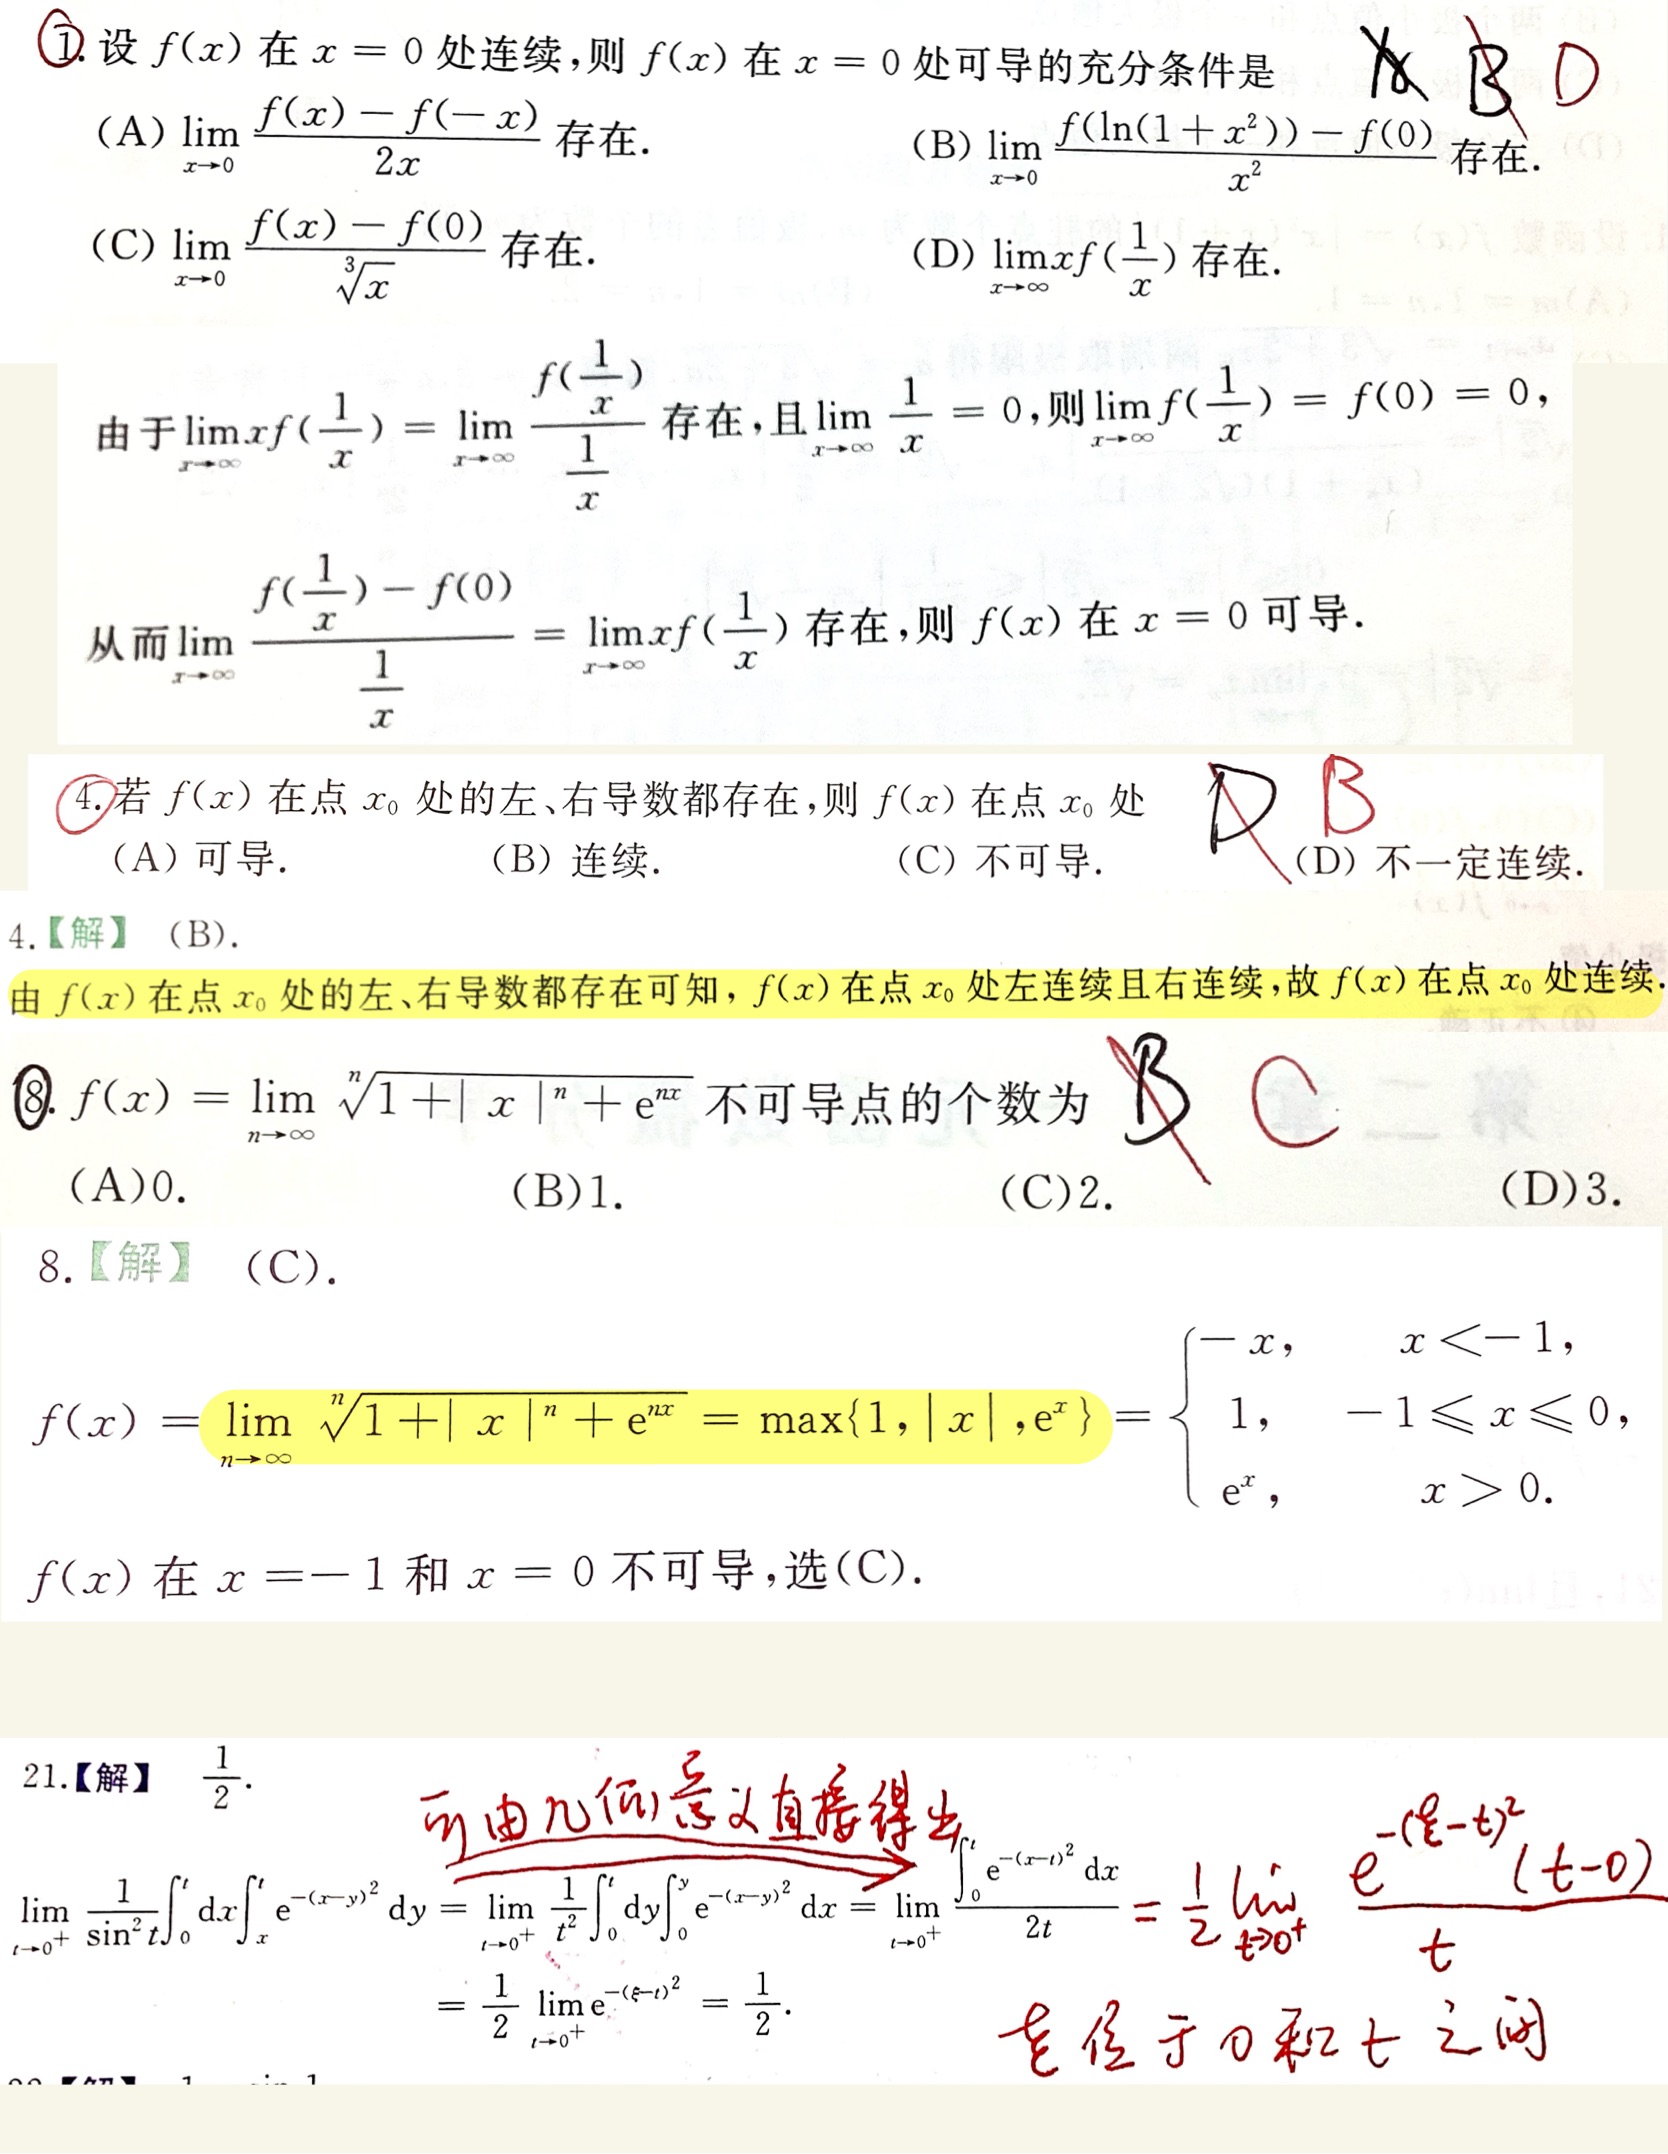 1. 设 f(x) 在 x = 0 处连续,则 f(x) 在 x = 0 处可导的充分条件是 B D
(A) lim_{x→0} \frac{f(x) − f(−x)}{2x} 存在. (B) lim_{x→0} \frac{f(ln(1+x²)) − f(0)}{x²} 存在.
(C) lim_{x→0} \frac{f(x) − f(0)}{\sqrt[3]{x}} 存在. (D) lim_{x→∞} xf(\frac{1}{x}) 存在.
由于 lim_{x→∞} xf(\frac{1}{x}) = lim_{x→∞} \frac{f(\frac{1}{x})}{\frac{1}{x}} 存在,且 lim_{x→∞} \frac{1}{x} = 0,则 lim_{x→∞} f(\frac{1}{x}) = f(0) = 0,
从而 lim_{x→∞} \frac{f(\frac{1}{x}) − f(0)}{\frac{1}{x}} = lim_{x→∞} xf(\frac{1}{x}) 存在,则 f(x) 在 x = 0 可导.
4. 若 f(x) 在点 x₀ 处的左、右导数都存在,则 f(x) 在点 x₀ 处 D B
(A) 可导. (B) 连续. (C) 不可导. (D) 不一定连续.
4.【解】 (B).
由 f(x) 在点 x₀ 处的左、右导数都存在可知, f(x) 在点 x₀ 处左连续且右连续,故 f(x) 在点 x₀ 处连续.
8. f(x) = lim_{n→∞} \sqrt[n]{1+|x|^n+e^{nx}} 不可导点的个数为 B C
(A)0. (B)1. (C)2. (D)3.
8.【解】 (C).
f(x) = lim_{n→∞} \sqrt[n]{1+|x|^n+e^{nx}} = max{1,|x|,e^x} = { −x, x<−1, 1, −1≤x≤0, e^x, x>0.
f(x) 在 x =−1 和 x = 0 不可导,选(C).
21.【解】 \frac{1}{2}.
可由几何意义直接得出
lim_{t→0⁺} \frac{1}{sin²t} ∫_0^t dx ∫_x^t e^{−(x−y)²} dy = lim_{t→0⁺} \frac{1}{t²} ∫_0^t dy ∫_0^y e^{−(x−y)²} dx = lim_{t→0⁺} \frac{∫_0^t e^{−(x−t)²} dx}{2t} = \frac{1}{2} lim_{t→0⁺} \frac{e^{−(ξ−t)²}(t−0)}{t}
= \frac{1}{2} lim_{t→0⁺} e^{−(ξ−t)²} = \frac{1}{2}.
ξ位于0和t之间